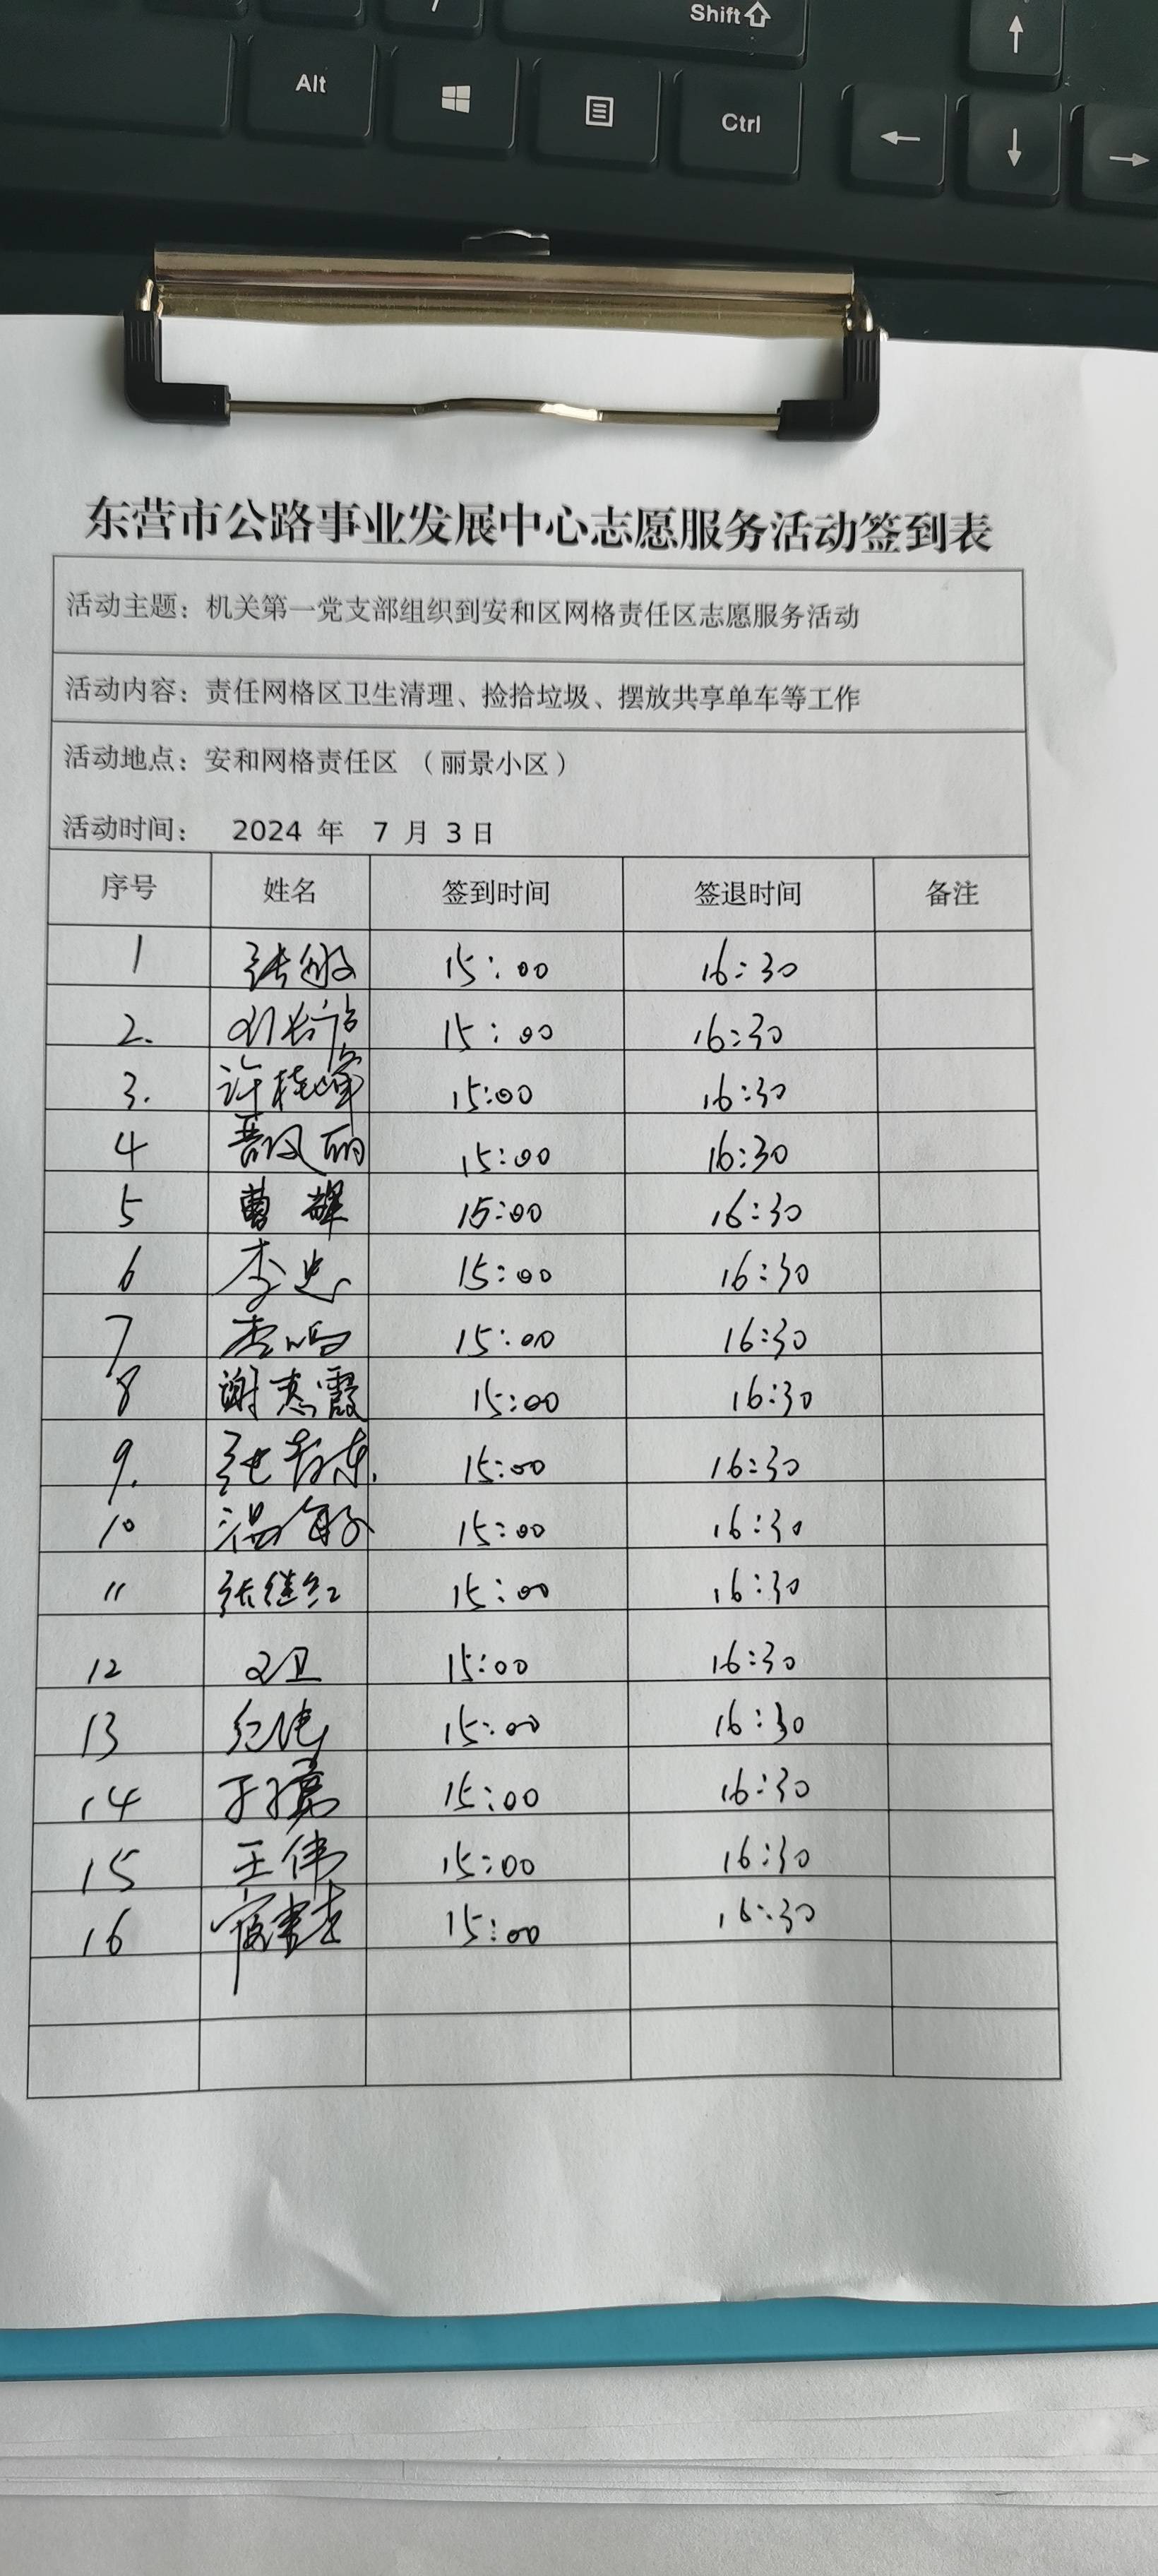 Shift
Alt
Ctrl
东营市公路事业发展中心志愿服务活动签到表
活动主题：机关第一党支部组织到安和区网格责任区志愿服务活动
活动内容：责任网格区卫生清理、捡拾垃圾、摆放共享单车等工作
活动地点：安和网格责任区 （丽景小区）
活动时间： 2024 年 7 月 3日
序号 姓名 签到时间 签退时间 备注
1 张敏 15:00 16:30
2. 15:00 16:30
3. 许桂峰 15:00 16:30
4 15:00 16:30
5 曹辉 15:00 16:30
6 李忠 15:00 16:30
7 李鸣 15:00 16:30
8 谢惠霞 15:00 16:30
9. 15:00 16:30
10 15:00 16:30
11 张继红 15:00 16:30
12 15:00 16:30
13 15:00 16:30
14 15:00 16:30
15 王伟 15:00 16:30
16 15:00 16:30